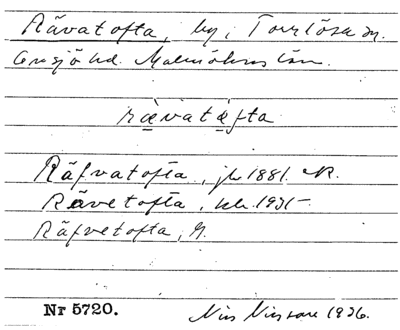 Rävatofta, by, Torrlösa sn.
Onsjö hd. Malmöhus län.
rävatåfta
Räfvatofta, jb 1881. R.
Rävetofta, 1935
Räfvetofta, G.
Nr 5720.
Nils 1936.